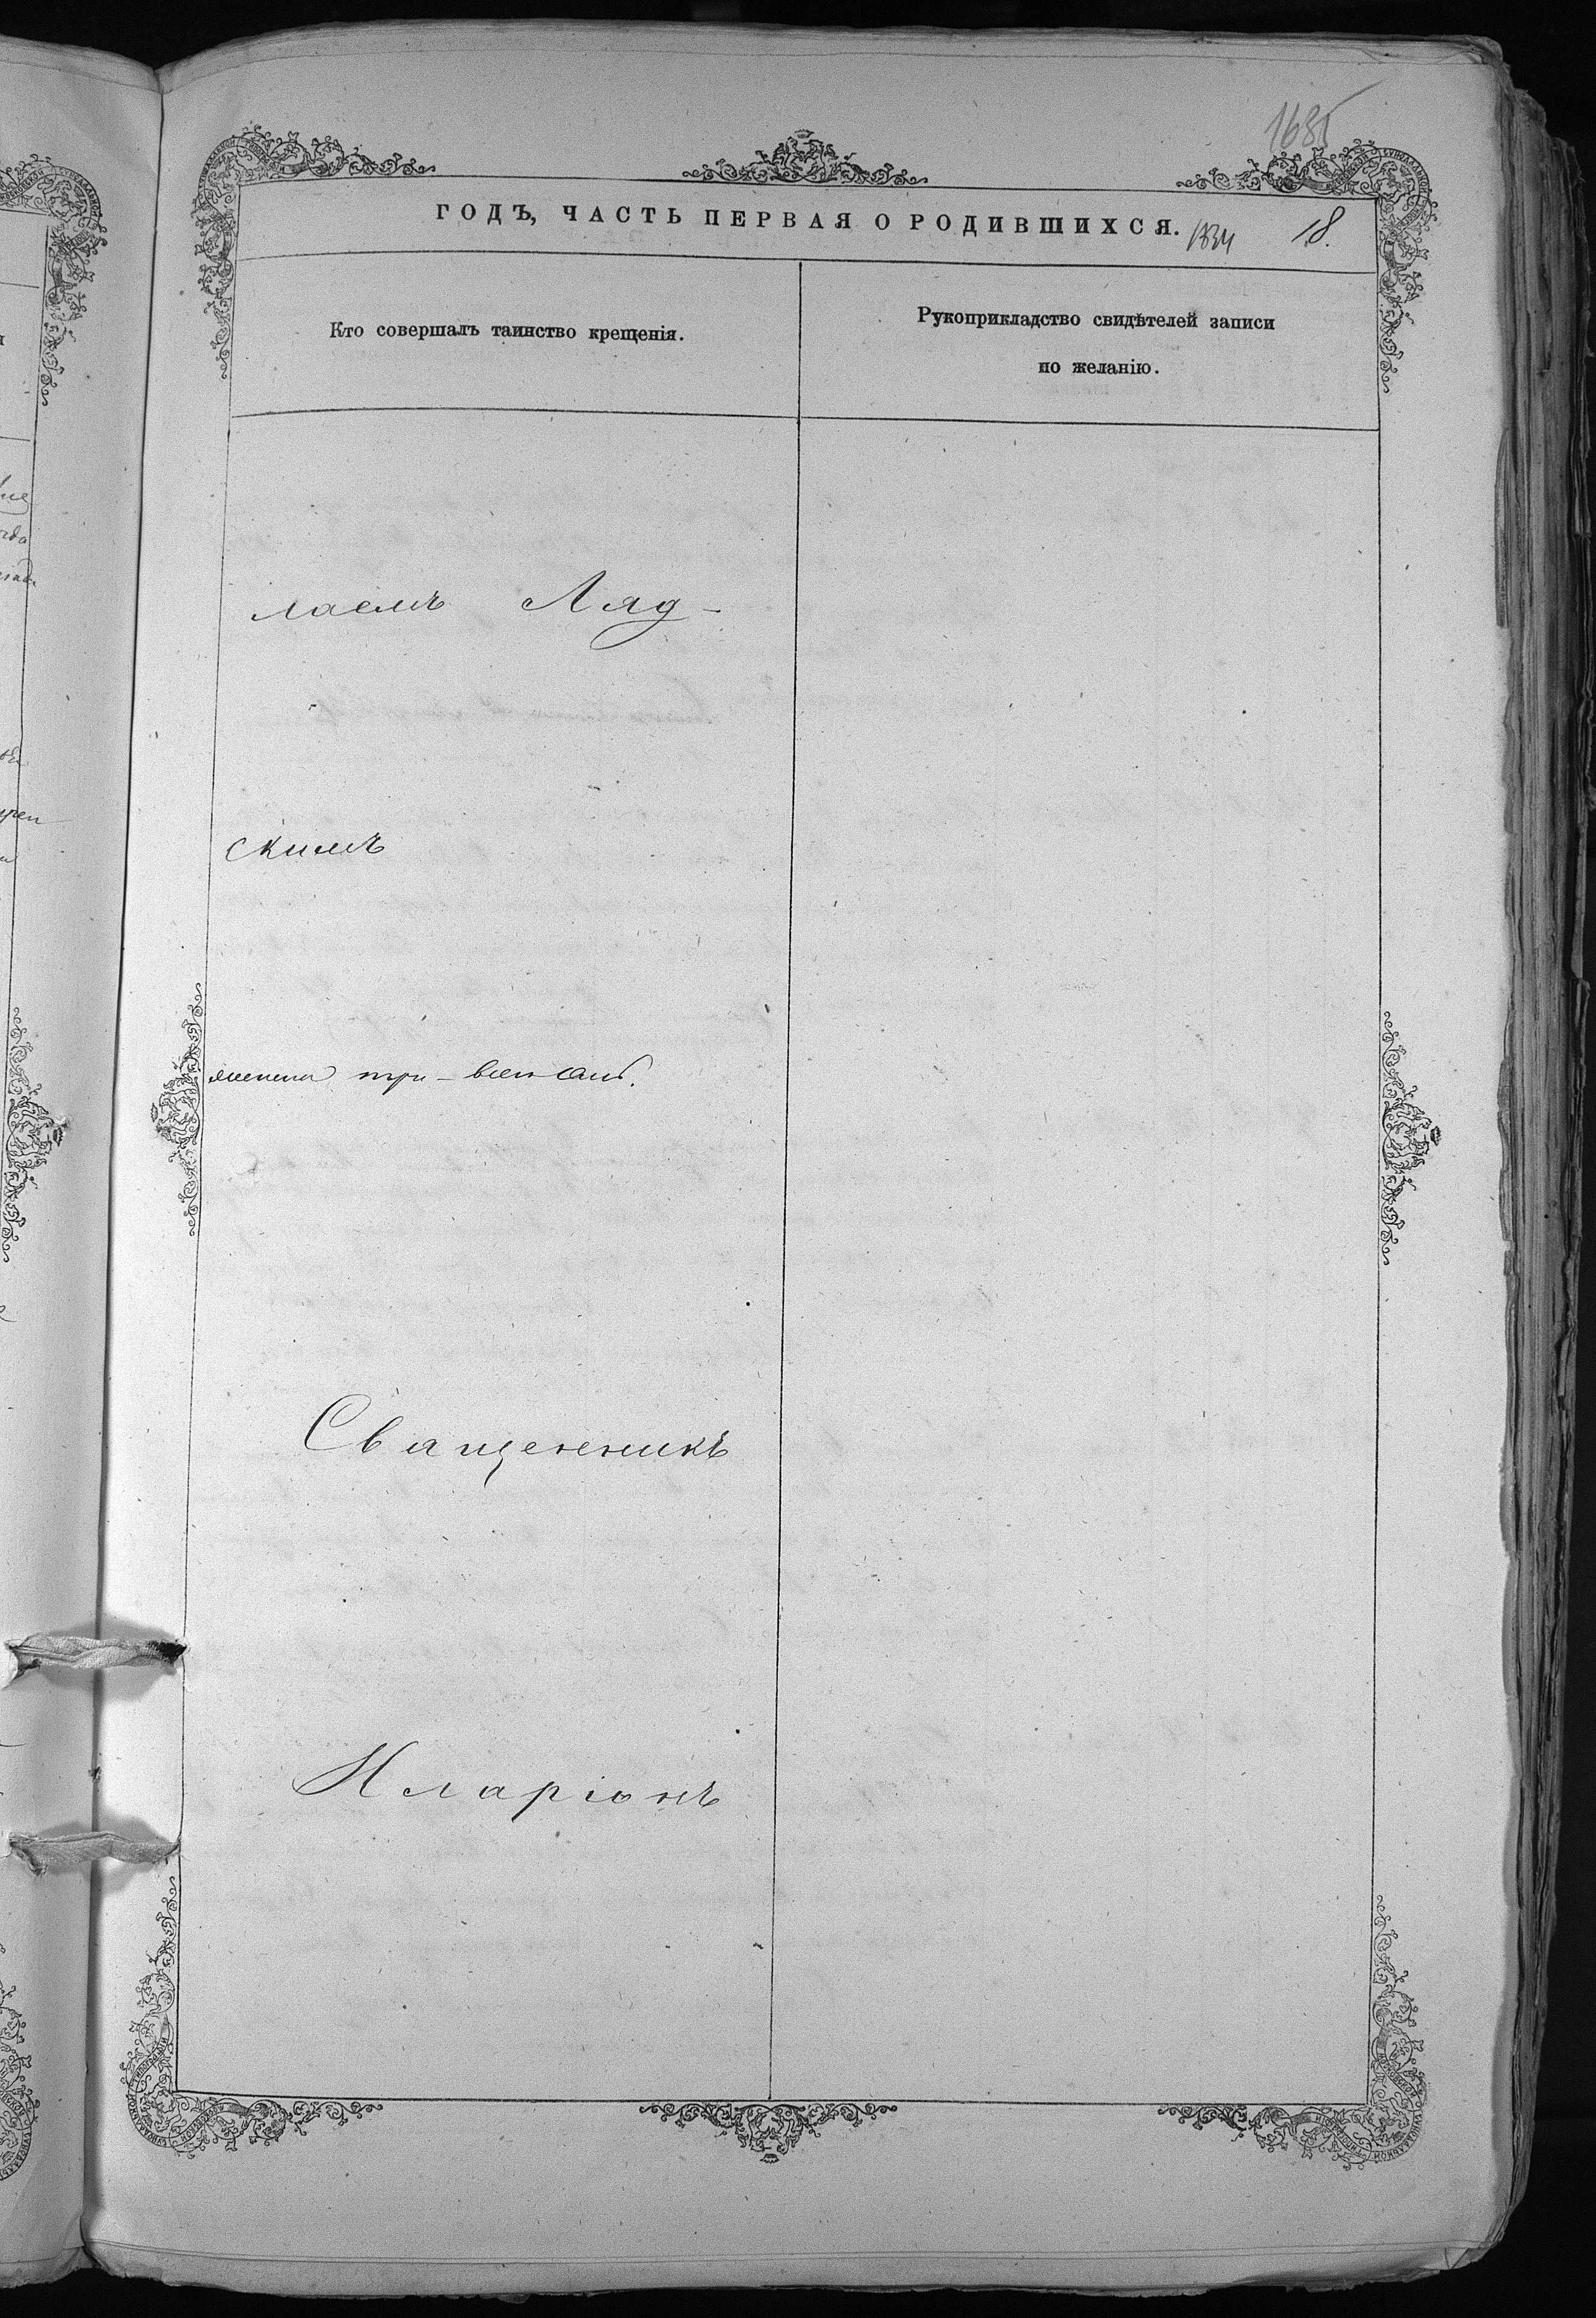 1685
ГОДЪ, ЧАСТЬ ПЕРВАЯ О РОДИВШИХСЯ. 1834 18.
Кто совершалъ таинство крещенія.
Рукоприкладство свидѣтелей записи
по желанію.
лаемъ Ляд-
скимъ
Священникъ
Иларіонъ